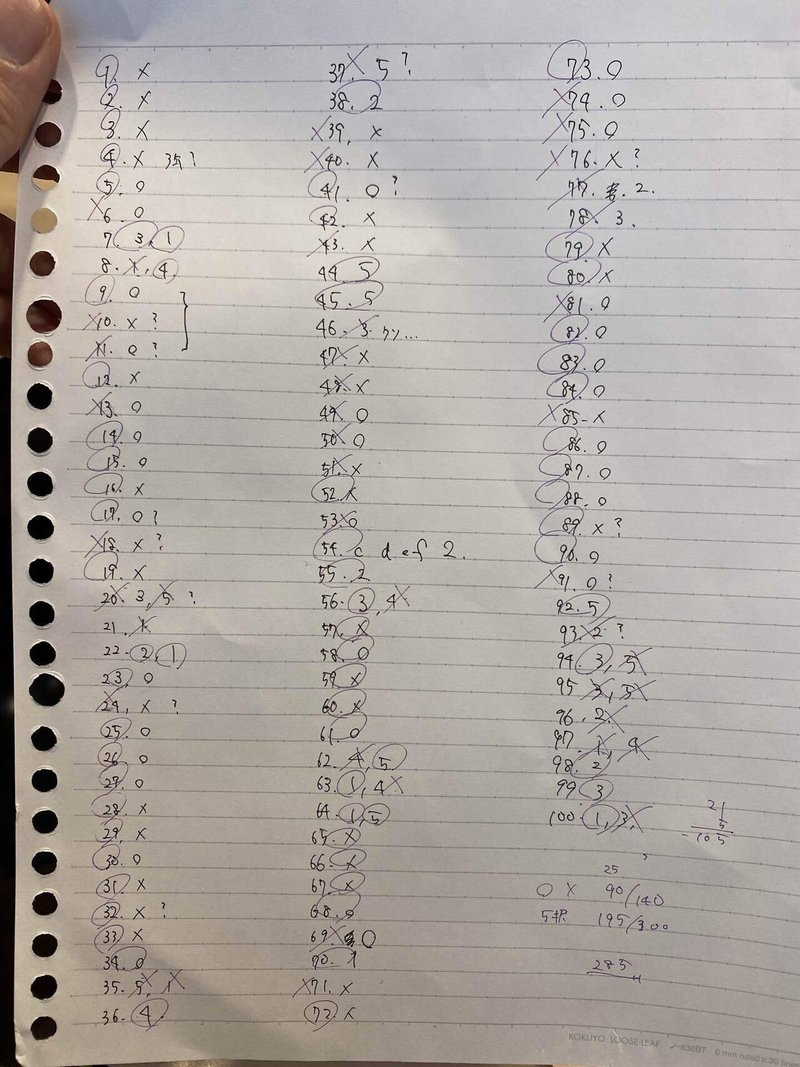 1. ×
2. ×
3. ×
4. × 35?
5. ○
×6. ○
7. 3, 1
8. ×, 4
9. ○
×10. × ?
11. ○ ?
12. ×
13. ○
14. ○
15. ○
16. ×
17. ○ ?
×18. × ?
19. ×
20. 3, 5 ?
21. 1
22. 2, 1
23. ○
24. × ?
25. ○
26. ○
27. ○
28. ×
29. ×
30. ○
31. ×
32. × ?
33. ×
34. ○
35. 5, 1
36. 4
37. 5 ?
38. 2
×39. ×
×40. ×
41. ○ ?
42. ×
43. ×
44. 5
45. 5
46. 3
47. ×
48. ×
49. ○
50. ○
51. ×
52. ×
53. ○
54. c d e f 2.
55. 2
56. 3, 4
57. ×
58. ○
59. ×
60. ×
61. ○
62. 4, 5
63. 1, 4
64. 1, 5
65. ×
66. ×
67. ×
68. ○
69. ○
70. 1
×71. ×
72. ×
73. ○
×74. ○
×75. ○
×76. × ?
77. 2.
78. 3.
79. ×
80. ×
×81. ○
82. ○
83. ○
84. ○
×85. ×
86. ○
87. ○
88. ○
89. × ?
90. ○
×91. ○ ?
92. 5
93. 2 ?
94. 3, 5
95. 3, 5
96. 2
97. 1, 4
98. 2
99. 3
100. 1, 3
21
5
105
25
○ × 90/140
5択 195/300
285
KOKUYO LOOSE-LEAF ノ-836BT 6 mm ruled×36 lines